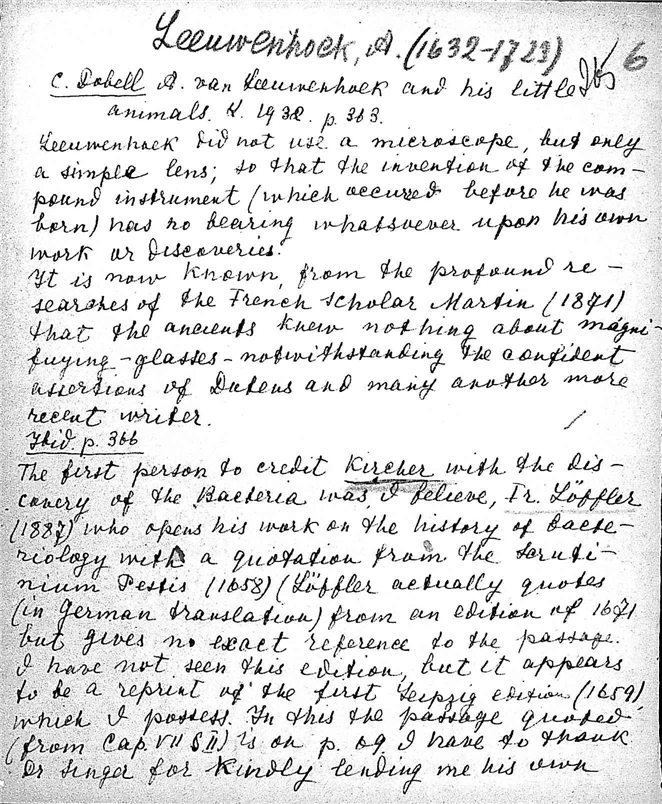 Leeuwenhoek, A. (1632-1723) 6
C. Dobell A. van Leeuwenhoek and his little
animals. 1932. p. 363.
Leeuwenhoek did not use a microscope, but only
a simple lens; so that the invention of the com-
pound instrument (which occured before he was
born) has no bearing whatsoever upon his own
work or discoveries.
It is now known, from the profound re-
searches of the French scholar Martin (1871)
that the ancients knew nothing about magni-
fying-glasses - notwithstanding the confident
assertions of Dutens and many another more
recent writer.
Ibid. p. 366
The first person to credit Kircher with the dis-
covery of the Bacteria was, I believe, Fr. Löffler
(1887) who opens his work on the history of bacte-
riology with a quotation from the Scruti-
nium Pestis (1658) (Löffler actually quotes
(in German translation) from an edition of 1671
but gives no exact reference to the passage.
I have not seen this edition, but it appears
to be a reprint of the first Leipzig edition (1659),
which I possess. In this the passage quoted
(from Cap. VII § II) is on p. 69. I have to thank
Dr Singer for kindly lending me his own